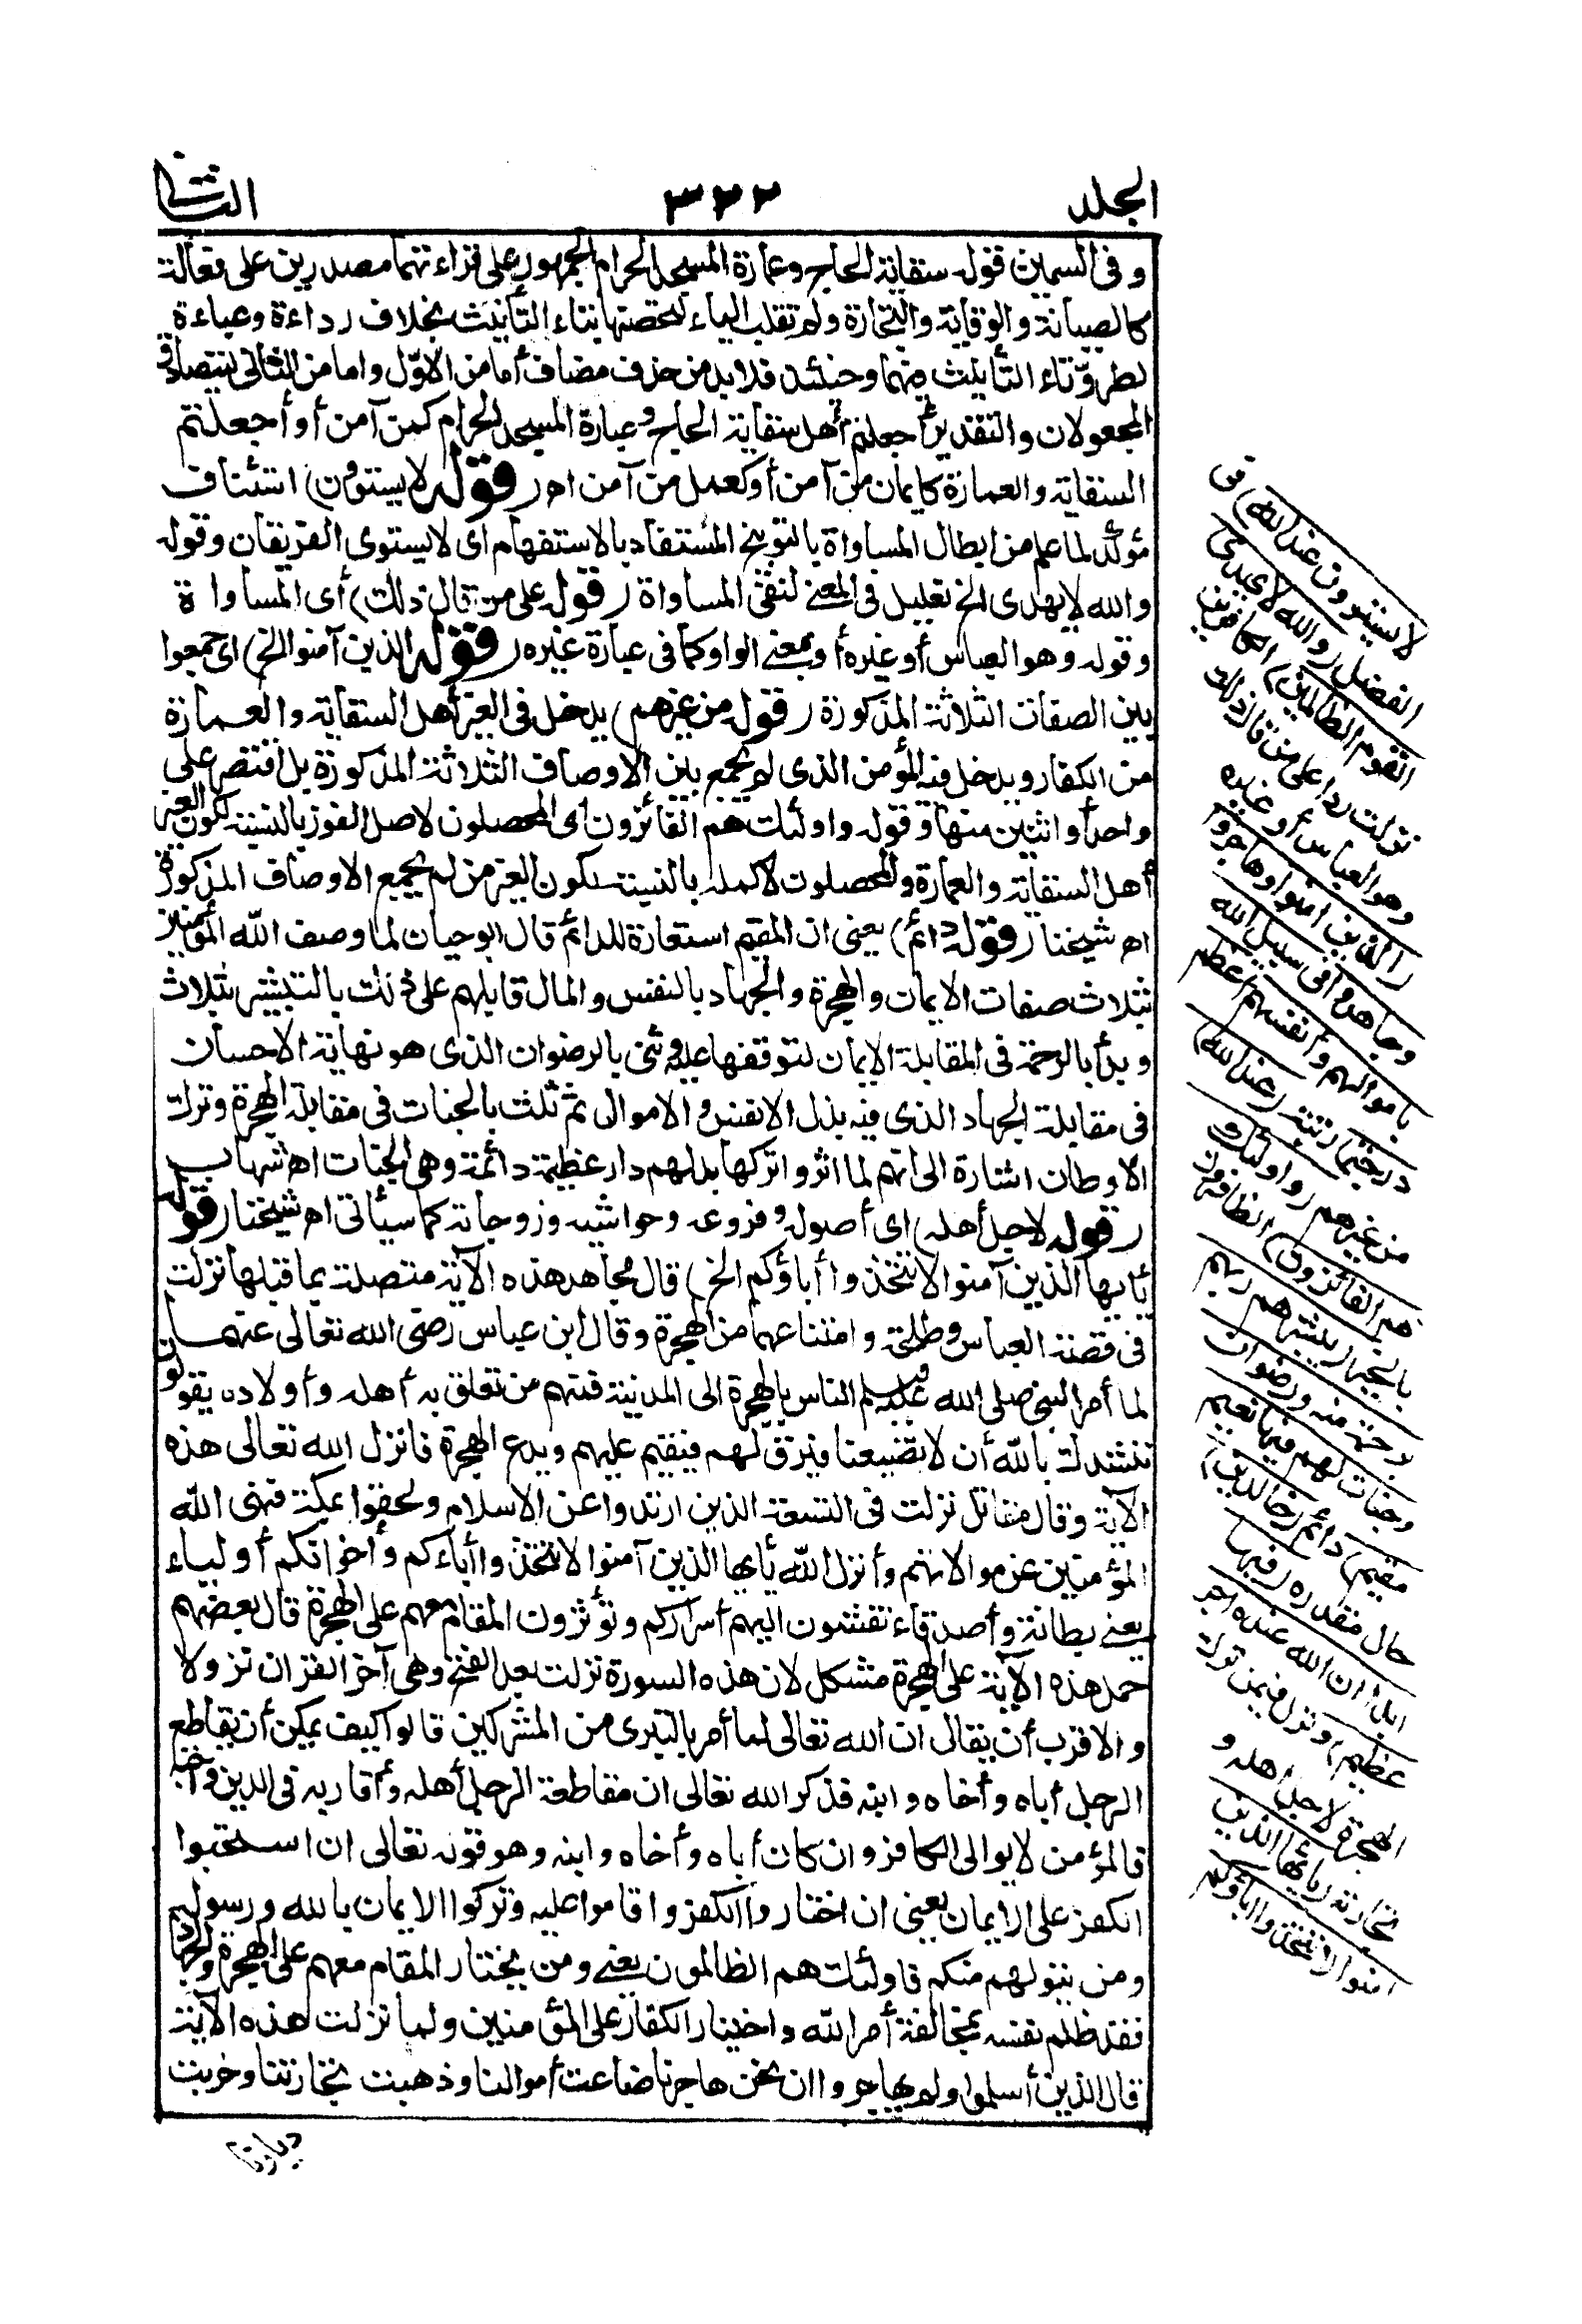 الجلد
٣٢٢
الثانى
وفى السمين قوله سقاية الحاج وعمارة المسجد الحرام الجمهور على قراءتهما مصدرين على فعالة
كالصيانة والوقاية والتجارة ولم تقلب الياء لتحصنها بتاء التأنيث بخلاف رداءة وعباءة
لطروّ تاء التأنيث فيهما وحينئذ فلا بد من حذف مضاف أما من الاوّل واما من الثانى ليتصادق
المجعولان والتقدير أجعلتم أهل سقاية الحاج وعمارة المسجد الحرام كمن آمن أو أجعلتم
السقاية والعمارة كايمان من آمن أو كعمل من آمن اهـ (قوله لا يستوون) استئناف
مؤكد لما علم من ابطال المساواة بالتوبيخ المستفاد بالاستفهام اى لا يستوى الفريقان وقوله
والله لا يهدى الخ تعليل فى المعنى لنفى المساواة (قوله على من قال ذلك) أى المساواة
وقوله وهو العباس أو غيره أو بمعنى الواو كما فى عبارة غيره (قوله الذين آمنوا الخ) اى جمعوا
بين الصفات الثلاثة المذكورة (قوله من غيرهم) يدخل فى الغير أهل السقاية والعمارة
من الكفار ويدخل فيه المؤمن الذى لم يجمع بين الاوصاف الثلاثة المذكورة بل اقتصر على
واحد أو اثنين منها وقوله واولئك هم الفائزون أى المحصلون لاصل الفوز بالنسبة لكون الغير
أهل السقاية والعمارة والمحصلون لاكمله بالنسبة لكون الغير من لم يجمع الاوصاف المذكورة
اهـ شيخنا (قوله دائم) يعنى ان المقيم استعارة للدائم قال ابو حيان لما وصف الله المؤمنين
بثلاث صفات الايمان والهجرة والجهاد بالنفس والمال قابلهم على ذلك بالتبشير بثلاث
وبدأ بالرحمة فى المقابلة الايمان لتوقفها عليه وثنى بالرضوان الذى هو نهاية الاحسان
فى مقابلة الجهاد الذى فيه بذل الانفس والاموال ثم ثلث بالجنات فى مقابلة الهجرة وترك
الاوطان اشارة الى انهم لما اثروا تركها بدلهم دار عظيمة دائمة وهى الجنات اهـ شهاب
(قوله لاجل أهله) اى أصوله وفروعه وحواشيه وزوجاته كما سيأتى اهـ شيخنا (قوله
يأيها الذين آمنوا لا تتخذوا أباؤكم الخ) قال مجاهد هذه الآية متصلة بما قبلها نزلت
فى قصة العباس وطلحة وامتناعهما من الهجرة وقال ابن عباس رضى الله تعالى عنهما
لما أمر النبى صلى الله عليه وسلم الناس بالهجرة الى المدينة فمنهم من تعلق به أهله وأولاده يقولون
ننشدك بالله أن لا تضيعنا فيرق لهم فيقيم عليهم ويدع الهجرة فانزل الله تعالى هذه
الآية وقال مقاتل نزلت فى التسعة الذين ارتدوا عن الاسلام ولحقوا بمكة فنهى الله
المؤمنين عن موالاتهم وأنزل الله يأيها الذين آمنوا لا تتخذوا أباءكم وأخوانكم أولياء
يعنى بطانة وأصدقاء تفشون اليهم أسراركم وتؤثرون المقام معهم على الهجرة قال بعضهم
حمل هذه الآية على الهجرة مشكل لان هذه السورة نزلت بعد الفتح وهى آخر القرآن نزولا
والاقرب أن يقال ان الله تعالى لما أمر بالتبرى من المشركين قالوا كيف يمكن أن يقاطع
الرجل أباه وأخاه وابنه فذكر الله تعالى ان مقاطعة الرجل أهله وأقاربه فى الدين واجبة
فالمؤمن لا يوالى الكافر وان كان أباه وأخاه وابنه وهو قوله تعالى ان استحبوا
الكفر على الايمان يعنى ان اختاروا الكفر واقاموا عليه وتركوا الايمان بالله ورسوله
ومن يتولهم منكم فاولئك هم الظالمون يعنى ومن يختار المقام معهم على الهجرة والجهاد
فقد ظلم نفسه بمخالفة أمر الله واختيار الكفار على المؤمنين ولما نزلت هذه الآية
قال الذين أسلموا ولم يهاجروا ان نحن هاجرنا ضاعت أموالنا وذهبت تجارتنا وخربت
ديارنا
لا يستوون عند الله) فى
الفضل (والله لا يهدى
القوم الظالمين) الكافرين
نزلت ردا على من قال ذلك
وهو العباس أو غيره
(الذين امنوا وهاجروا
وجاهدوا فى سبيل الله
باموالهم وأنفسهم أعظم
درجة) رتبة (عند الله)
من غيرهم (واولئك
هم الفائزون) الظافرون
بالخير (يبشرهم ربهم
برحمة منه ورضوان
وجنات لهم فيها نعيم
مقيم) دائم (خالدين)
حال مقدرة (فيها
ابدا ان الله عنده اجر
عظيم) ونزل فيمن ترك
الهجرة لاجل اهله و
تجارته (يأيها الذين
امنوا لا تتخذوا اباؤكم